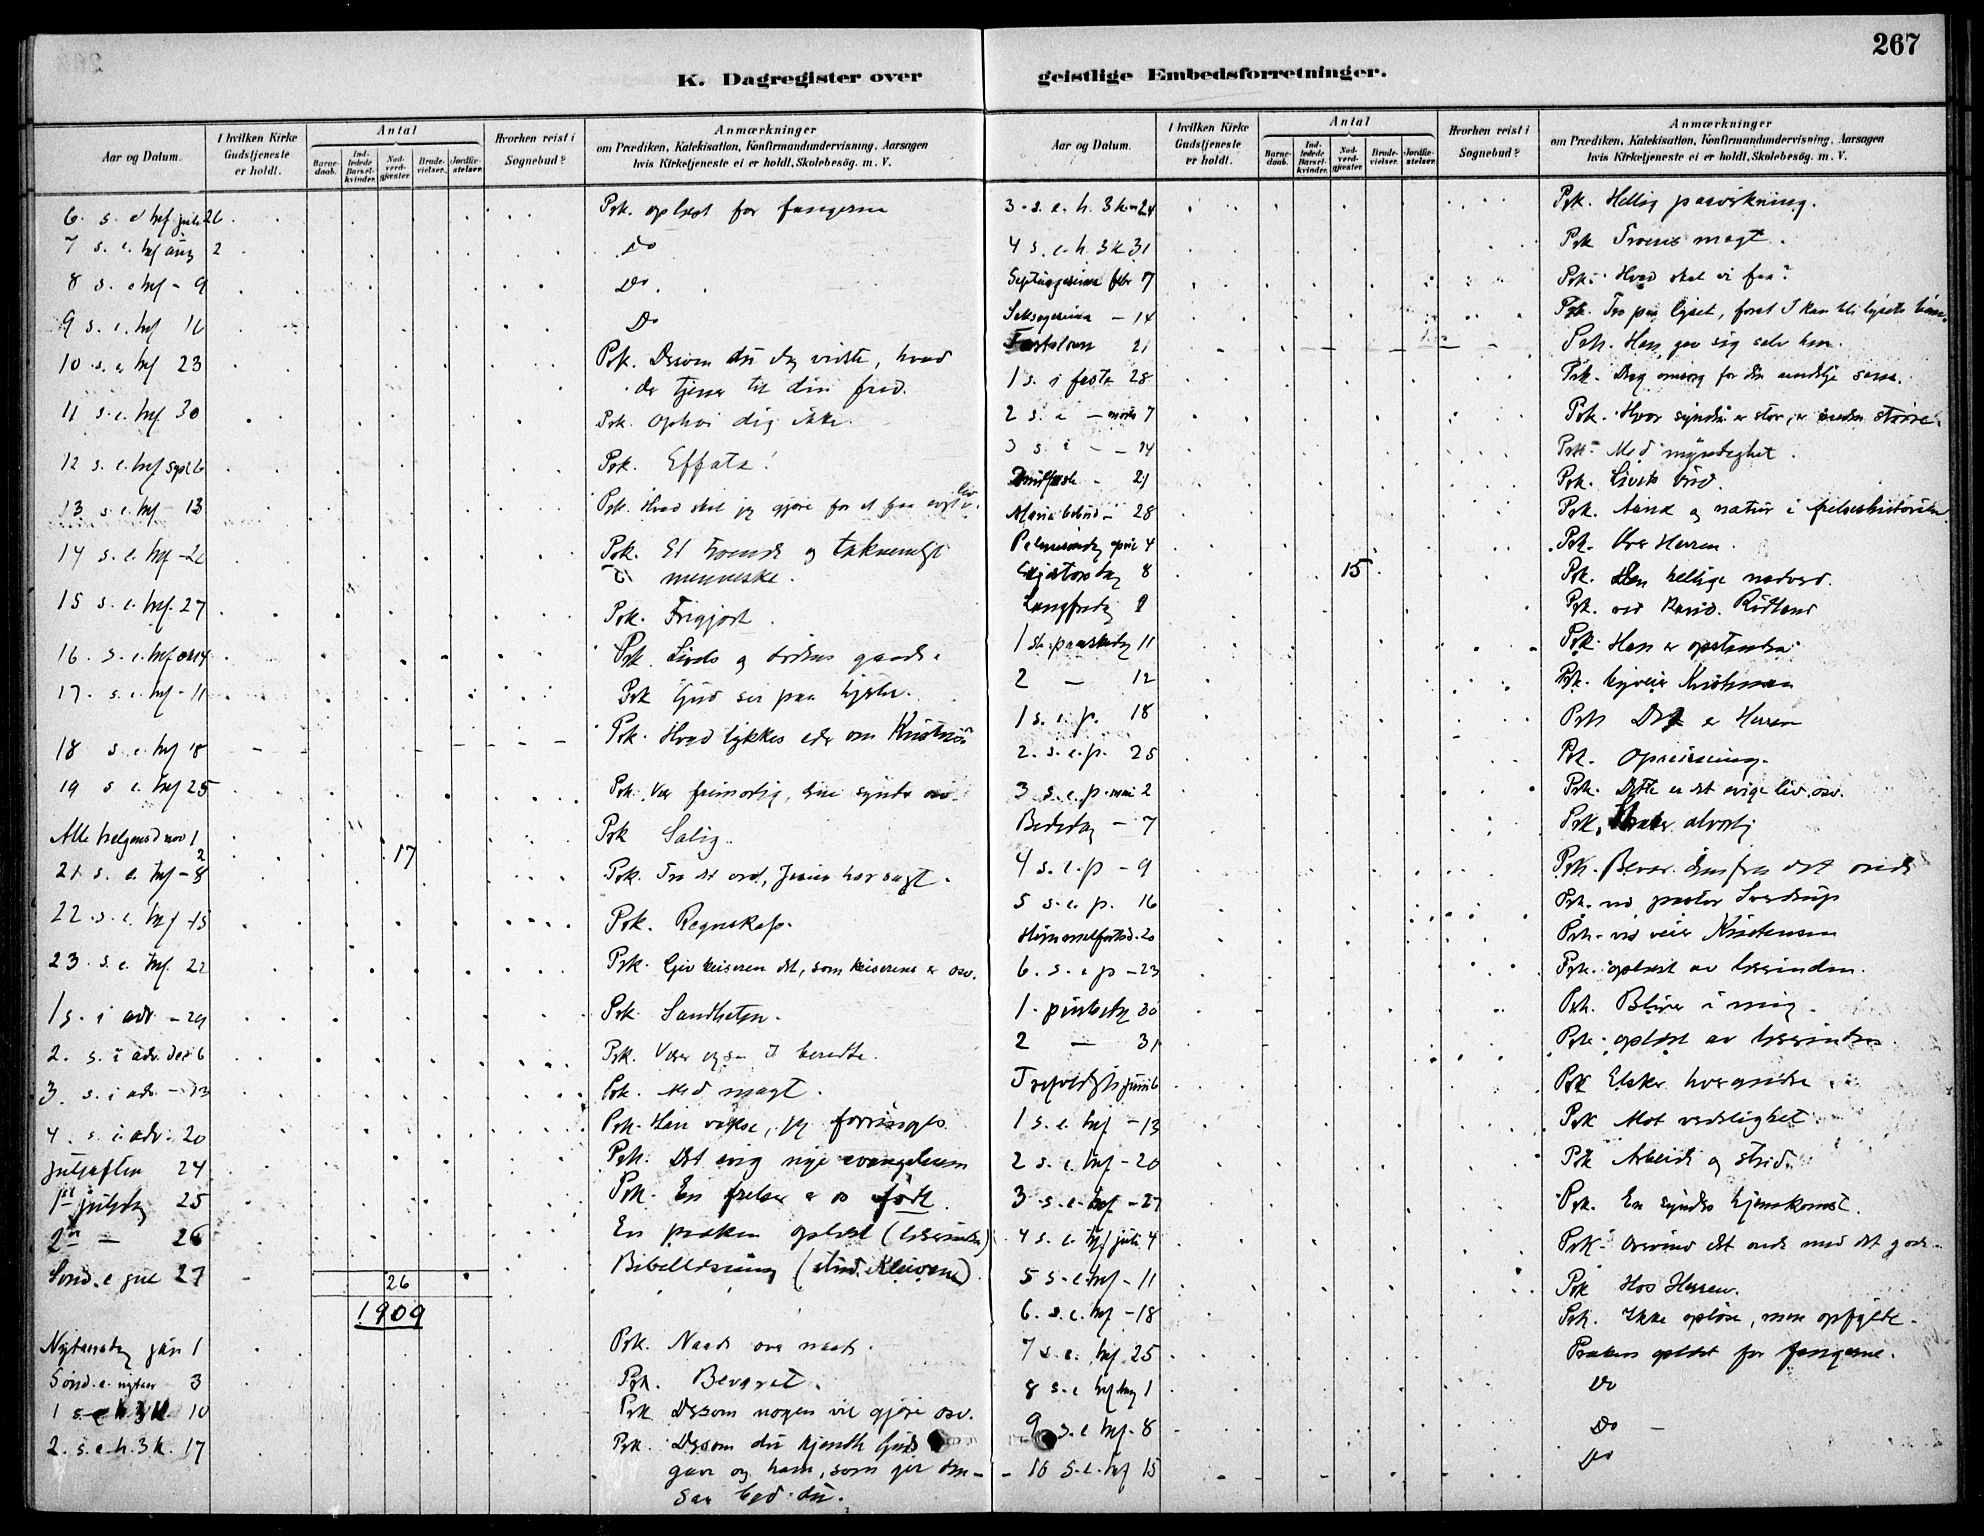 267
K. Dagregister over geistlige Embedsforretninger.
Aar og Datum.
I hvilken Kirke Gudstjeneste er holdt.
Antal
Barne-daab.
Ind-ledede Barsel-kvinder.
Nad-verd-gjæster
Brude-vielser.
Jordfæ-stelser.
Hvorhen reist i Sognebud?
Anmærkninger
om Prædiken, Katekisation, Konfirmandundervisning, Aarsagen
hvis Kirketjeneste ei er holdt, Skolebesög. m. V.
6. s. e. hef juli 26 Prk. oplæst for fangerne
7 s. e. hef aug 2 Do
8 s. e hef - 9 Do.
9 s. e. hef 16 Do
10 s. e hef 23 Prk. Dersom du dog vidste, hvad
der tjener til din fred.
11 s. e. hef. 30 Prk. Ophøi dig ikke.
12 s. e. hef sept 6 Prk. Effata!
13 s. e. hef - 13 Prk. Hvad skal jeg gjøre for at faa evigt liv.
14 s. e. hef - 20 Prk. Et troende og taknemligt
menneske.
15 s. e. hef. 27 Prk. Frigjort.
16. s. e. hef okt 4 Prk. Livets og dødens gaade.
17. s. e. hef - 11 Prk Gud ser paa hjertet.
18 s. e. hef 18 Prk. Hvad tykkes eder om Kristus
19 s. e. hef 25 Prk. Vær frimodig, dine synder osv.
Alle helgensd nov 1 Prk Salig.
2 17
21 s. e. hef - 8 Prk. Tro det ord, Jesus har sagt.
22. s. e. hef - 15 Prk. Regnskap.
23. s. e. hef. 22 Prk. Giv keiseren det, som keiserens er osv.
1 s. i adv - 29 Prk. Sandheten.
2. s. i adv. des 6 Prk. Vær ogsaa I beredte.
3. s. i adv - 13 Prk. Med magt.
4. s. i adv. 20 Prk. Han vokse, jeg forringes
Juleaften 24 Prk. Det evig nye evangelium
1st juledag 25 Prk. En frelser er os født
2en — 26 En præken oplæst (lærerinden)
Sønd. e jul 27 26 Bibellæsning (stud. Kleivene)
1909
Nytaarsdag jan 1 Prk. Naade over naade.
Sønd. e. nytaar 3 Prk. Bevaret.
1 s. e h. 3 k. 10 Prk Dersom nogen vil gjøre osv.
2. s. e. h. 3 k. 17 Prk. Dersom du kjendte Guds
gave og ham, som gir den
saa bad du.
Aar og Datum.
I hvilken Kirke Gudstjeneste er holdt.
Antal
Barne-daab.
Ind-ledede Barsel-kvinder.
Nad-verd-gjæster
Brude-vielser.
Jordfæ-stelser.
Hvorhen reist i Sognebud?
Anmærkninger
om Prædiken, Katekisation, Konfirmandundervisning, Aarsagen
hvis Kirketjeneste ei er holdt, Skolebesög. m. V.
3. s. e. h. 3 k. 24 Prk. Hellig paavirkning.
4 s. e. h. 3 k 31 Prk Troens magt.
Septuagesima febr 7 Prk. Hvad skal vi faa?
Seksagesima — 14 Prk. Tro paa lyset, forat I kan bli lysets børn.
Fastelavn 21 Prk. Han gav sig selv hen.
1 s. i faste 28 Prk. Drag omsorg for din aandelige sans.
2 s. i — mars 7 Prk. Hvor synden er stor, er naaden større.
3 s. i — 14 Prk. Med myndighet.
Midfaste - 21 Prk. Livets brød.
Maria budsk - 28 Prk. Aand og natur i frelseshistorien.
Palmesøndag april 4 Prk. Vor Herren.
Skjærtorsdag 8 15 Prk. Den hellige nadverd.
Langfredag 9 Prk. ved kand. Rødland
1 ste paaskedag 11 Prk. Han er opstanden.
2 — 12 Prk. Kristensen
1 s. e. p. 18 Prk Det er Herren
2. s. e. p. 25 Prk. Opreisning.
3 s. e. p. mai 2 Prk. Dette er det evige liv. osv.
Bededag - 7 Prk. alvorlig
4 s. e. p - 9 Prk. Bevar dem fra det onde
5 s. e. p. 16 Prk. ved pastor Sverdrup
Himmelfartsd. 20 Prk. ved Kristensen
6. s. e p - 23 Prk. oplæst av lærerinden.
1. pinsedag 30 Prk. Bliver i mig.
2 — 31 Prk. oplæst av lærerinden
Trefoldigh juni 6 Prk Elsker hverandre
1 s. e. hef - 13 Prk Mot verdslighet.
2 s. e. hef - 20 Prk Arbeide og strid.
3 s. e. hef - 27 Prk. En synders hjemkomst.
4 s. e. hef juli 4 Prk. Overvind det onde med det gode.
5 s. e. hef - 11 Prk Hos Herren.
6. s. e. hef - 18 Prk. Ikke opløse, men opfylde.
7 s. e. hef. 25 Præken oplæst for fangerne.
8 s. e hef aug 1 Do
9 s. e hef - 8 Do
10 s. e. hef 15 Do